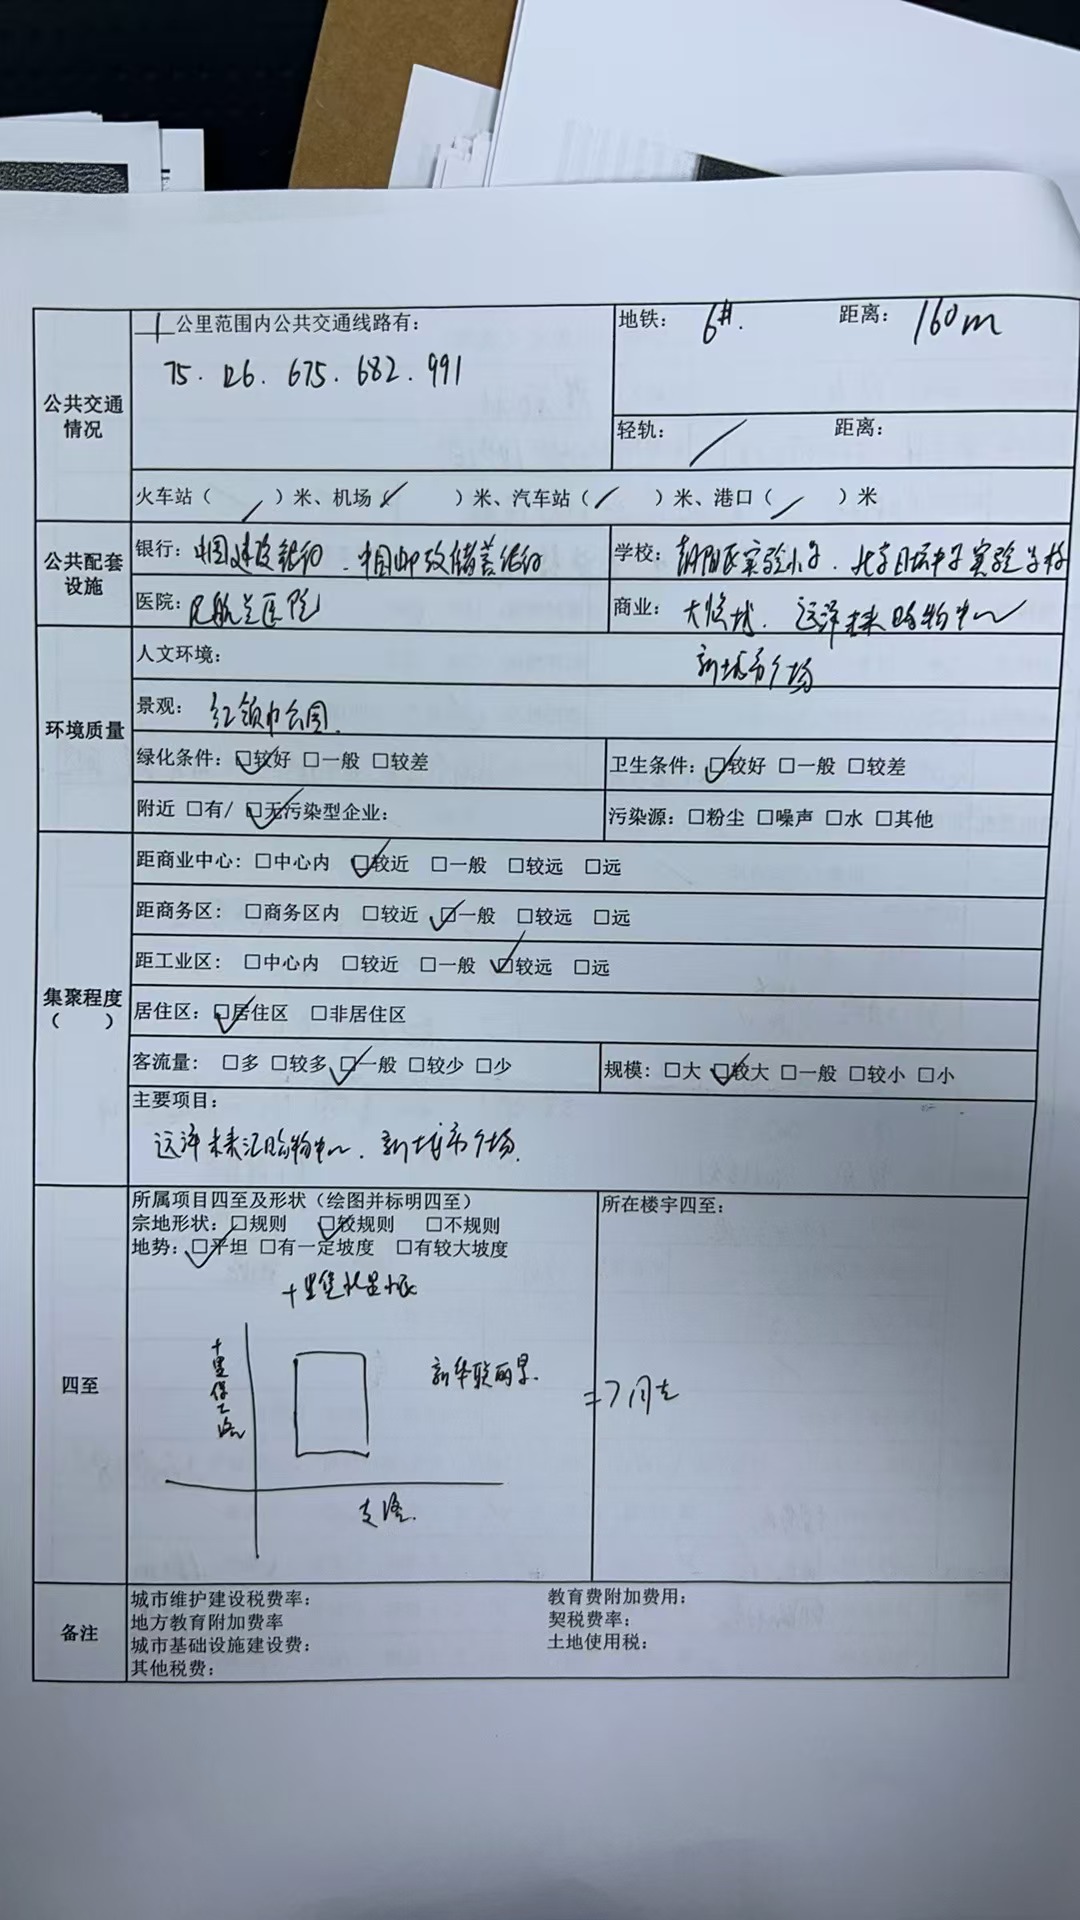 1 公里范围内公共交通线路有：
75. 126. 675. 682. 991
地铁： 6#. 距离： 160m
公共交通情况
轻轨： / 距离：
火车站（ / ）米、机场（ / ）米、汽车站（ / ）米、港口（ / ）米
公共配套设施
银行：中国建设银行、中国邮政储蓄银行
学校：朝阳区实验小学、北京日坛中学实验学校
医院：民航总医院
商业：大悦城、远洋未来购物中心
新城市广场
环境质量
人文环境：
景观：红领巾公园
绿化条件：☑较好 □一般 □较差
卫生条件：☑较好 □一般 □较差
附近 □有/ ☑无污染型企业：
污染源：□粉尘 □噪声 □水 □其他
集聚程度（ ）
距商业中心：□中心内 ☑较近 □一般 □较远 □远
距商务区：□商务区内 □较近 ☑一般 □较远 □远
距工业区：□中心内 □较近 □一般 ☑较远 □远
居住区：☑居住区 □非居住区
客流量：□多 □较多 ☑一般 □较少 □少
规模：□大 ☑较大 □一般 □较小 □小
主要项目：
远洋未来汇购物中心、新城市广场
四至
所属项目四至及形状（绘图并标明四至）
宗地形状：□规则 ☑较规则 □不规则
地势：☑平坦 □有一定坡度 □有较大坡度
十里堡北里小区
十里堡路
新华联丽景.
支路.
所在楼宇四至：
=> 同左
备注
城市维护建设税费率：
教育费附加费用：
地方教育附加费率
契税费率：
城市基础设施建设费：
土地使用税：
其他税费：